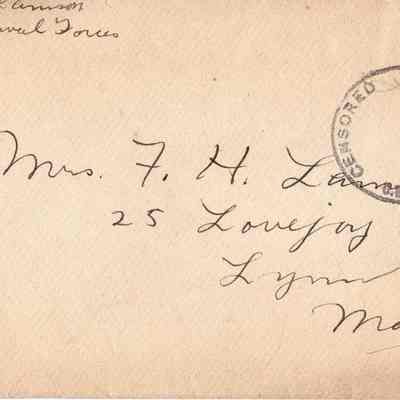 Lamson
Naval Forces
CENSORED
Mrs. F. H. Lam
25 Lovejoy
Lynn
Ma